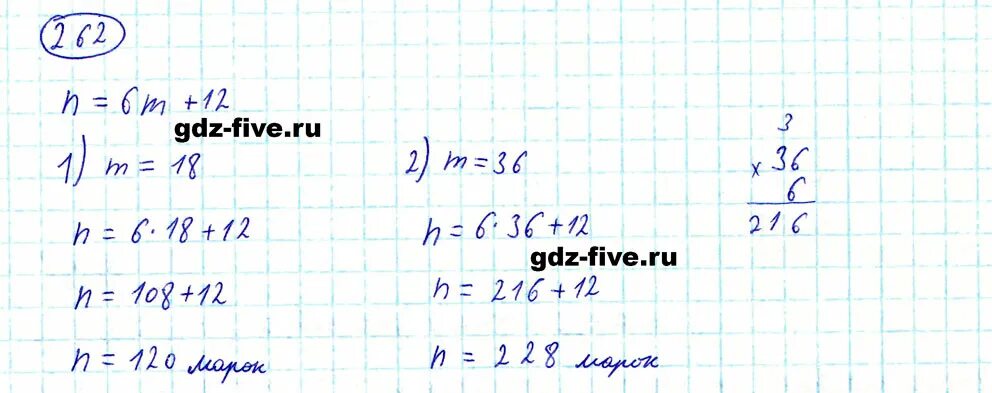 262
n = 6m + 12
gdz-five.ru
1) m = 18
n = 6 · 18 + 12
n = 108 + 12
n = 120 марок
2) m = 36
n = 6 · 36 + 12
gdz-five.ru
n = 216 + 12
n = 228 марок
3
x 36
6
216